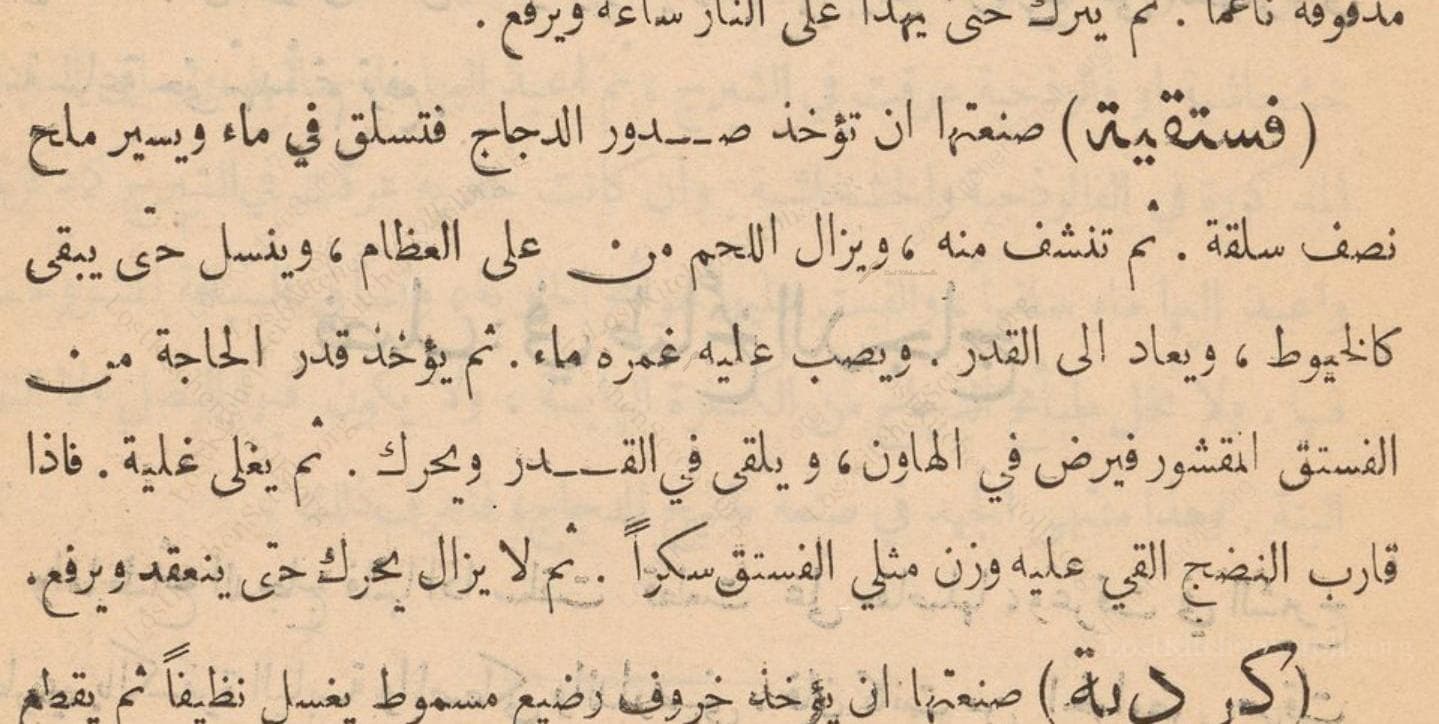 مدقوقة ناعماً . ثم يترك حتى يهدا على النار ساعة ويرفع .
(فستقية) صنعتها ان تؤخذ صـــدور الدجاج فتسلق في ماء ويسير ملح
نصف سلقة . ثم تنشف منه ، ويزال اللحم من على العظام ، وينسل حتى يبقى
كالخيوط ، ويعاد الى القدر . ويصب عليه غمره ماء . ثم يؤخذ قدر الحاجة من
الفستق المقشور فيرض في الهاون ، و يلقى في القـــدر ويحرك . ثم يغلى غلية . فاذا
قارب النضج القي عليه وزن مثلي الفستق سكراً . ثم لا يزال يحرك حتى ينعقد ويرفع .
(كردية) صنعتها ان يؤخذ خروف رضيع مسموط يغسل نظيفاً ثم يقطع